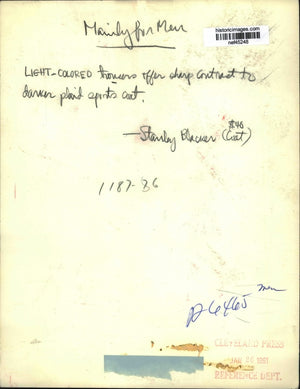 Mainly for Men
historicimages.com
nef45248
LIGHT-COLORED trousers offer sharp contrast to
darker plaid sports coat.
$40
—Stanley Blacker (Coat)
1187-36
men
CLEVELAND PRESS
JAN 26 1961
REFERENCE DEPT.